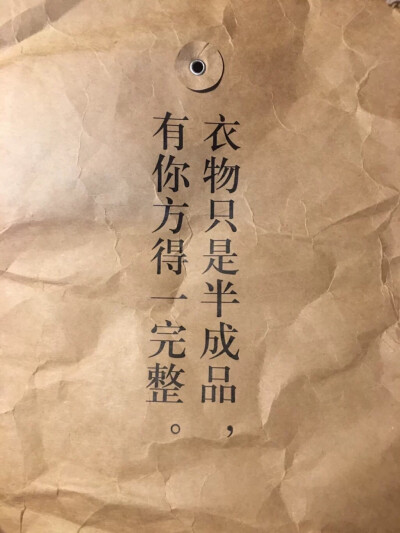 衣物只是半成品，
有你方得一完整。